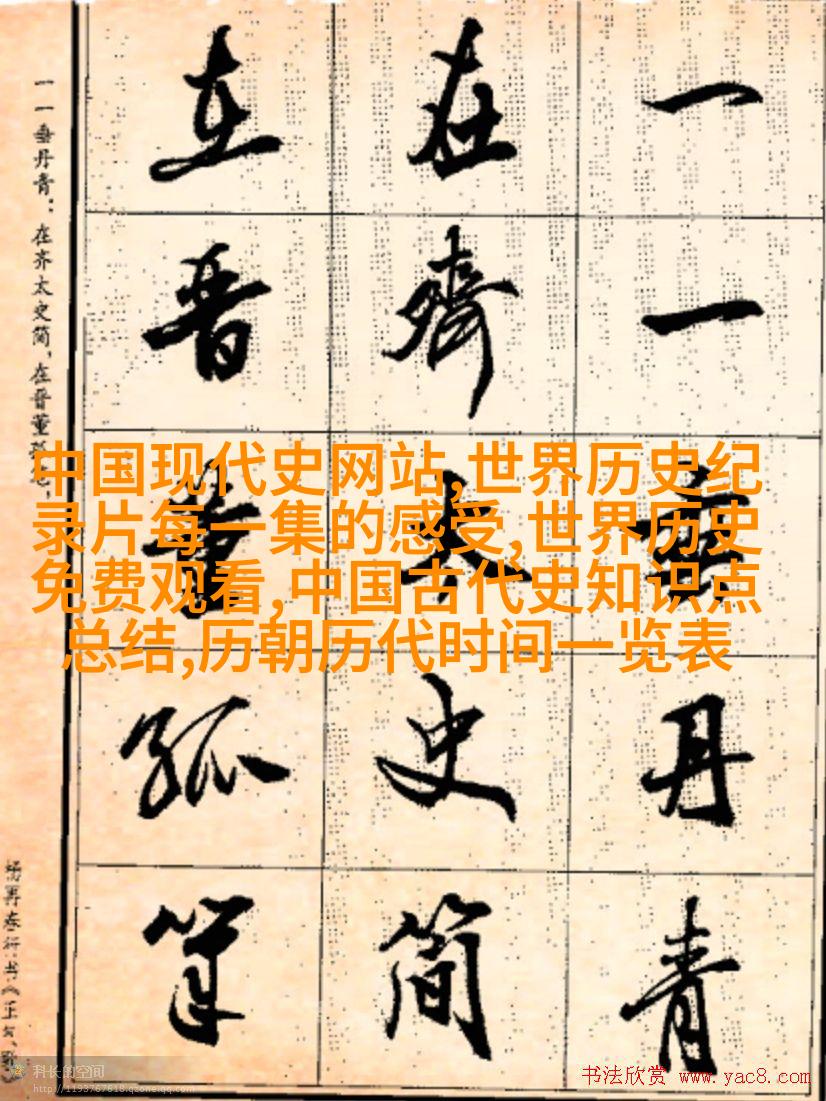 一一垂丹青
在齊太史简
在晋董狐筆
一一垂丹青：在齐太史简，在晋董
杨再春行书《正气
中国现代史网站,世界历史纪
录片每一集的感受,世界历史
免费观看,中国古代史知识点
总结,历朝历代时间一览表
科长的空间
http://1193767618.qzone.qq.com
书法欣赏 www.yac8.com